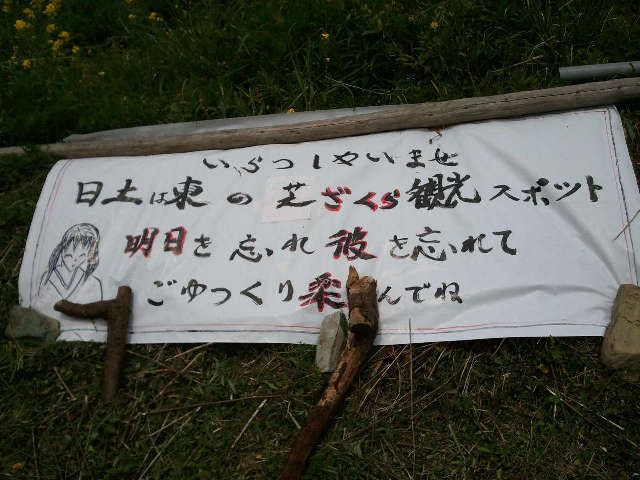 いらっしゃいませ
日土は東の芝ざくら観光スポット
明日を忘れ彼を忘れて
ごゆっくり楽んでね